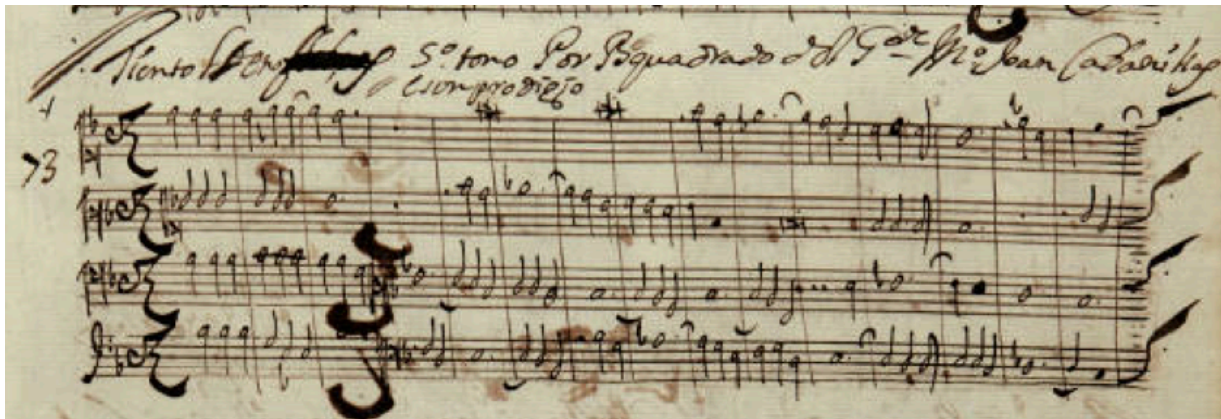 Tiento 5º tono Por Bquadrado del Gde Mº Joan Cabanillas
es un prodigio
73